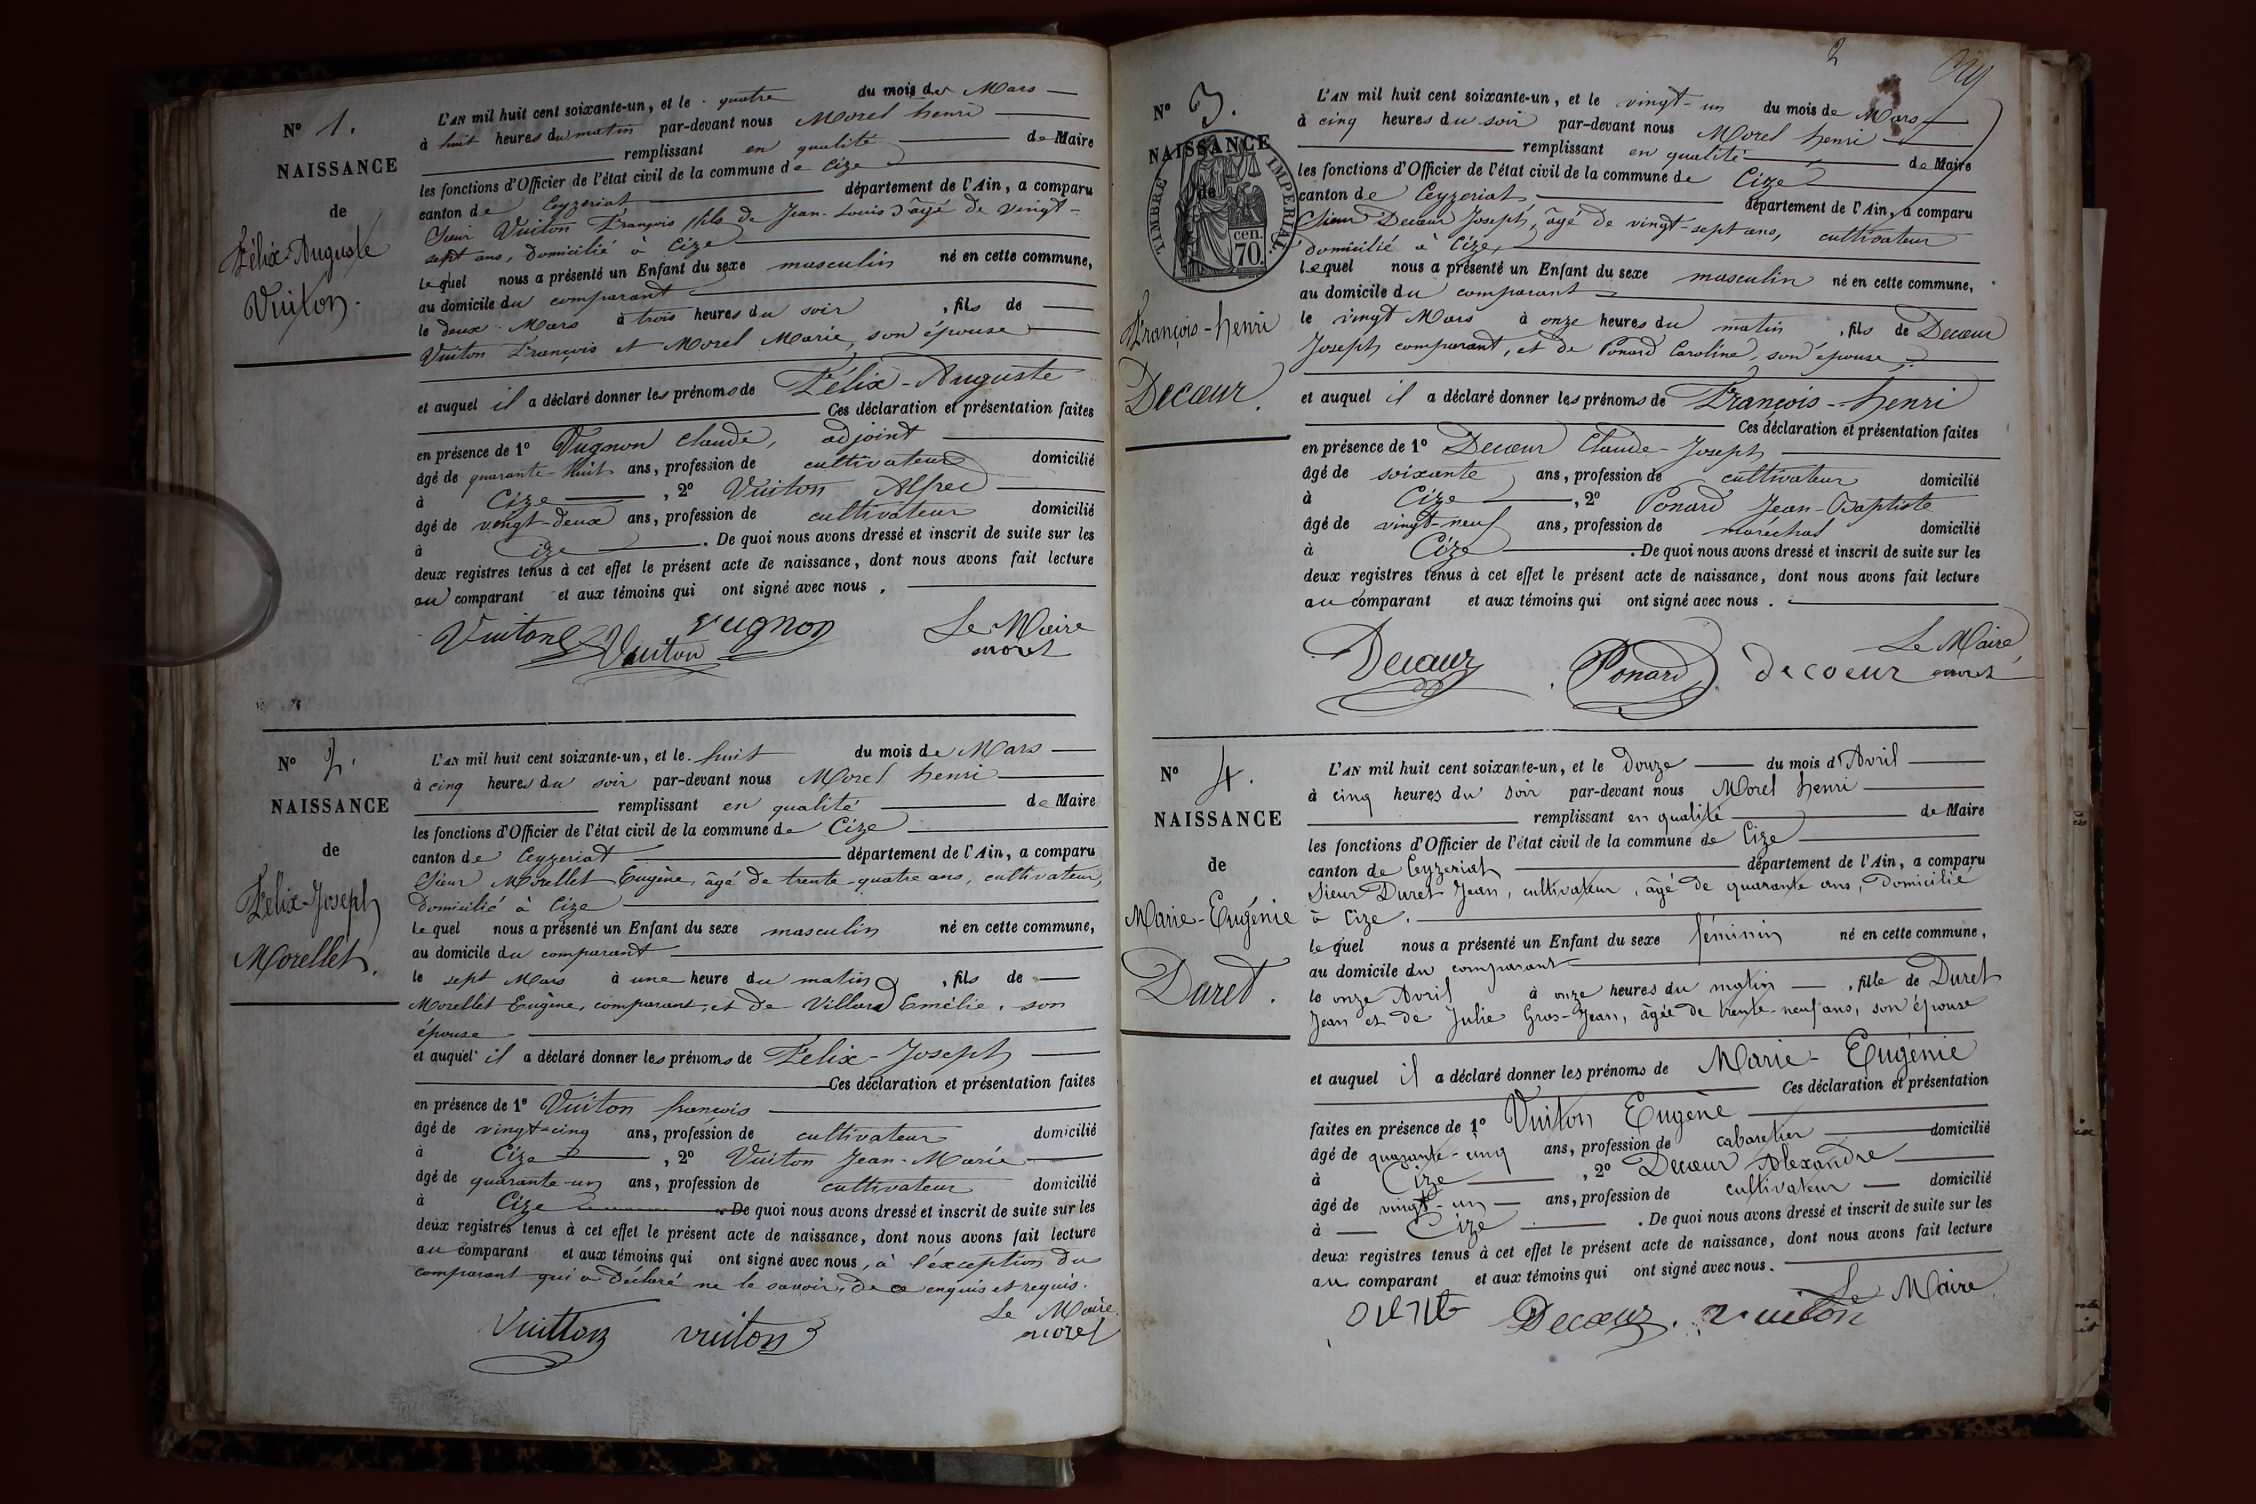 N° 1.
NAISSANCE
de
Félix-Auguste
Vuiton.
L'AN mil huit cent soixante-un, et le quatre du mois de Mars
à huit heures du matin par-devant nous Morel henri
remplissant en qualité de Maire
les fonctions d'Officier de l'état civil de la commune de Cize
canton de Ceyzeriat département de l'Ain, a comparu
Sieur Vuiton François fils de Jean-Louis âgé de vingt-
sept ans, domicilié à Cize
Lequel nous a présenté un Enfant du sexe masculin né en cette commune,
au domicile du comparant
le deux Mars à trois heures du soir, fils de
Vuiton François et Morel Marie, son épouse
et auquel il a déclaré donner les prénoms de Félix-Auguste
Ces déclaration et présentation faites
en présence de 1° Vugnon Claude, adjoint
âgé de quarante-huit ans, profession de cultivateur domicilié
à Cize, 2° Vuiton Alfred
âgé de vingt-deux ans, profession de cultivateur domicilié
à Cize. De quoi nous avons dressé et inscrit de suite sur les
deux registres tenus à cet effet le présent acte de naissance, dont nous avons fait lecture
au comparant et aux témoins qui ont signé avec nous.
Vuiton Vuiton Vugnon Le Maire
morel
N° 2.
NAISSANCE
de
Felix-Joseph
Morellet.
L'AN mil huit cent soixante-un, et le huit du mois de Mars
à cinq heures du soir par-devant nous Morel henri
remplissant en qualité de Maire
les fonctions d'Officier de l'état civil de la commune de Cize
canton de Ceyzeriat département de l'Ain, a comparu
Sieur Morellet Eugène, âgé de trente-quatre ans, cultivateur,
domicilié à Cize
Lequel nous a présenté un Enfant du sexe masculin né en cette commune,
au domicile du comparant
le sept Mars à une heure du matin, fils de
Morellet Eugène, comparant, et de Villard Emélie, son
épouse
et auquel il a déclaré donner les prénoms de Felix-Joseph
Ces déclaration et présentation faites
en présence de 1° Vuiton françois
âgé de vingt-cinq ans, profession de cultivateur domicilié
à Cize, 2° Vuiton Jean-Marie
âgé de quarante-un ans, profession de cultivateur domicilié
à Cize. De quoi nous avons dressé et inscrit de suite sur les
deux registres tenus à cet effet le présent acte de naissance, dont nous avons fait lecture
au comparant et aux témoins qui ont signé avec nous, à l'exception du
comparant qui a déclaré ne le savoir, de ce enquis et requis.
Vuitton vuiton Le Maire
morel
2
N° 3.
NAISSANCE
de
TIMBRE IMPERIAL
70 cen.
François-henri
Decœur.
L'AN mil huit cent soixante-un, et le vingt-un du mois de Mars
à cinq heures du soir par-devant nous Morel henri
remplissant en qualité de Maire
les fonctions d'Officier de l'état civil de la commune de Cize
canton de Ceyzeriat département de l'Ain, a comparu
Sieur Decœur Joseph, âgé de vingt-sept ans, cultivateur
domicilié à Cize,
Lequel nous a présenté un Enfant du sexe masculin né en cette commune,
au domicile du comparant
le vingt Mars à onze heures du matin, fils de Decœur
Joseph comparant, et de Ponard Caroline, son épouse,
et auquel il a déclaré donner les prénoms de François-henri
Ces déclaration et présentation faites
en présence de 1° Decœur Claude-Joseph
âgé de soixante ans, profession de cultivateur domicilié
à Cize, 2° Ponard Jean-Baptiste
âgé de vingt-neuf ans, profession de maréchal domicilié
à Cize. De quoi nous avons dressé et inscrit de suite sur les
deux registres tenus à cet effet le présent acte de naissance, dont nous avons fait lecture
au comparant et aux témoins qui ont signé avec nous.
Decœur Ponard decoeur Le Maire
morel
N° 4.
NAISSANCE
de
Marie-Eugénie
Duret.
L'AN mil huit cent soixante-un, et le Douze du mois d'Avril
à cinq heures du soir par-devant nous Morel henri
remplissant en qualité de Maire
les fonctions d'Officier de l'état civil de la commune de Cize
canton de Ceyzeriat département de l'Ain, a comparu
Sieur Duret Jean, cultivateur, âgé de quarante ans, Domicilié
à Cize.
lequel nous a présenté un Enfant du sexe féminin né en cette commune,
au domicile du comparant
le onze Avril à onze heures du matin, fille de Duret
Jean et de Julie Gros-Jean, âgée de trente-neuf ans, son épouse
et auquel il a déclaré donner les prénoms de Marie-Eugénie
Ces déclaration et présentation
faites en présence de 1° Vuiton Eugène
âgé de quarante-cinq ans, profession de cabaretier domicilié
à Cize, 2° Decœur Alexandre
âgé de vingt-un ans, profession de cultivateur domicilié
à Cize. De quoi nous avons dressé et inscrit de suite sur les
deux registres tenus à cet effet le présent acte de naissance, dont nous avons fait lecture
au comparant et aux témoins qui ont signé avec nous.
Decœur. vuiton Le Maire